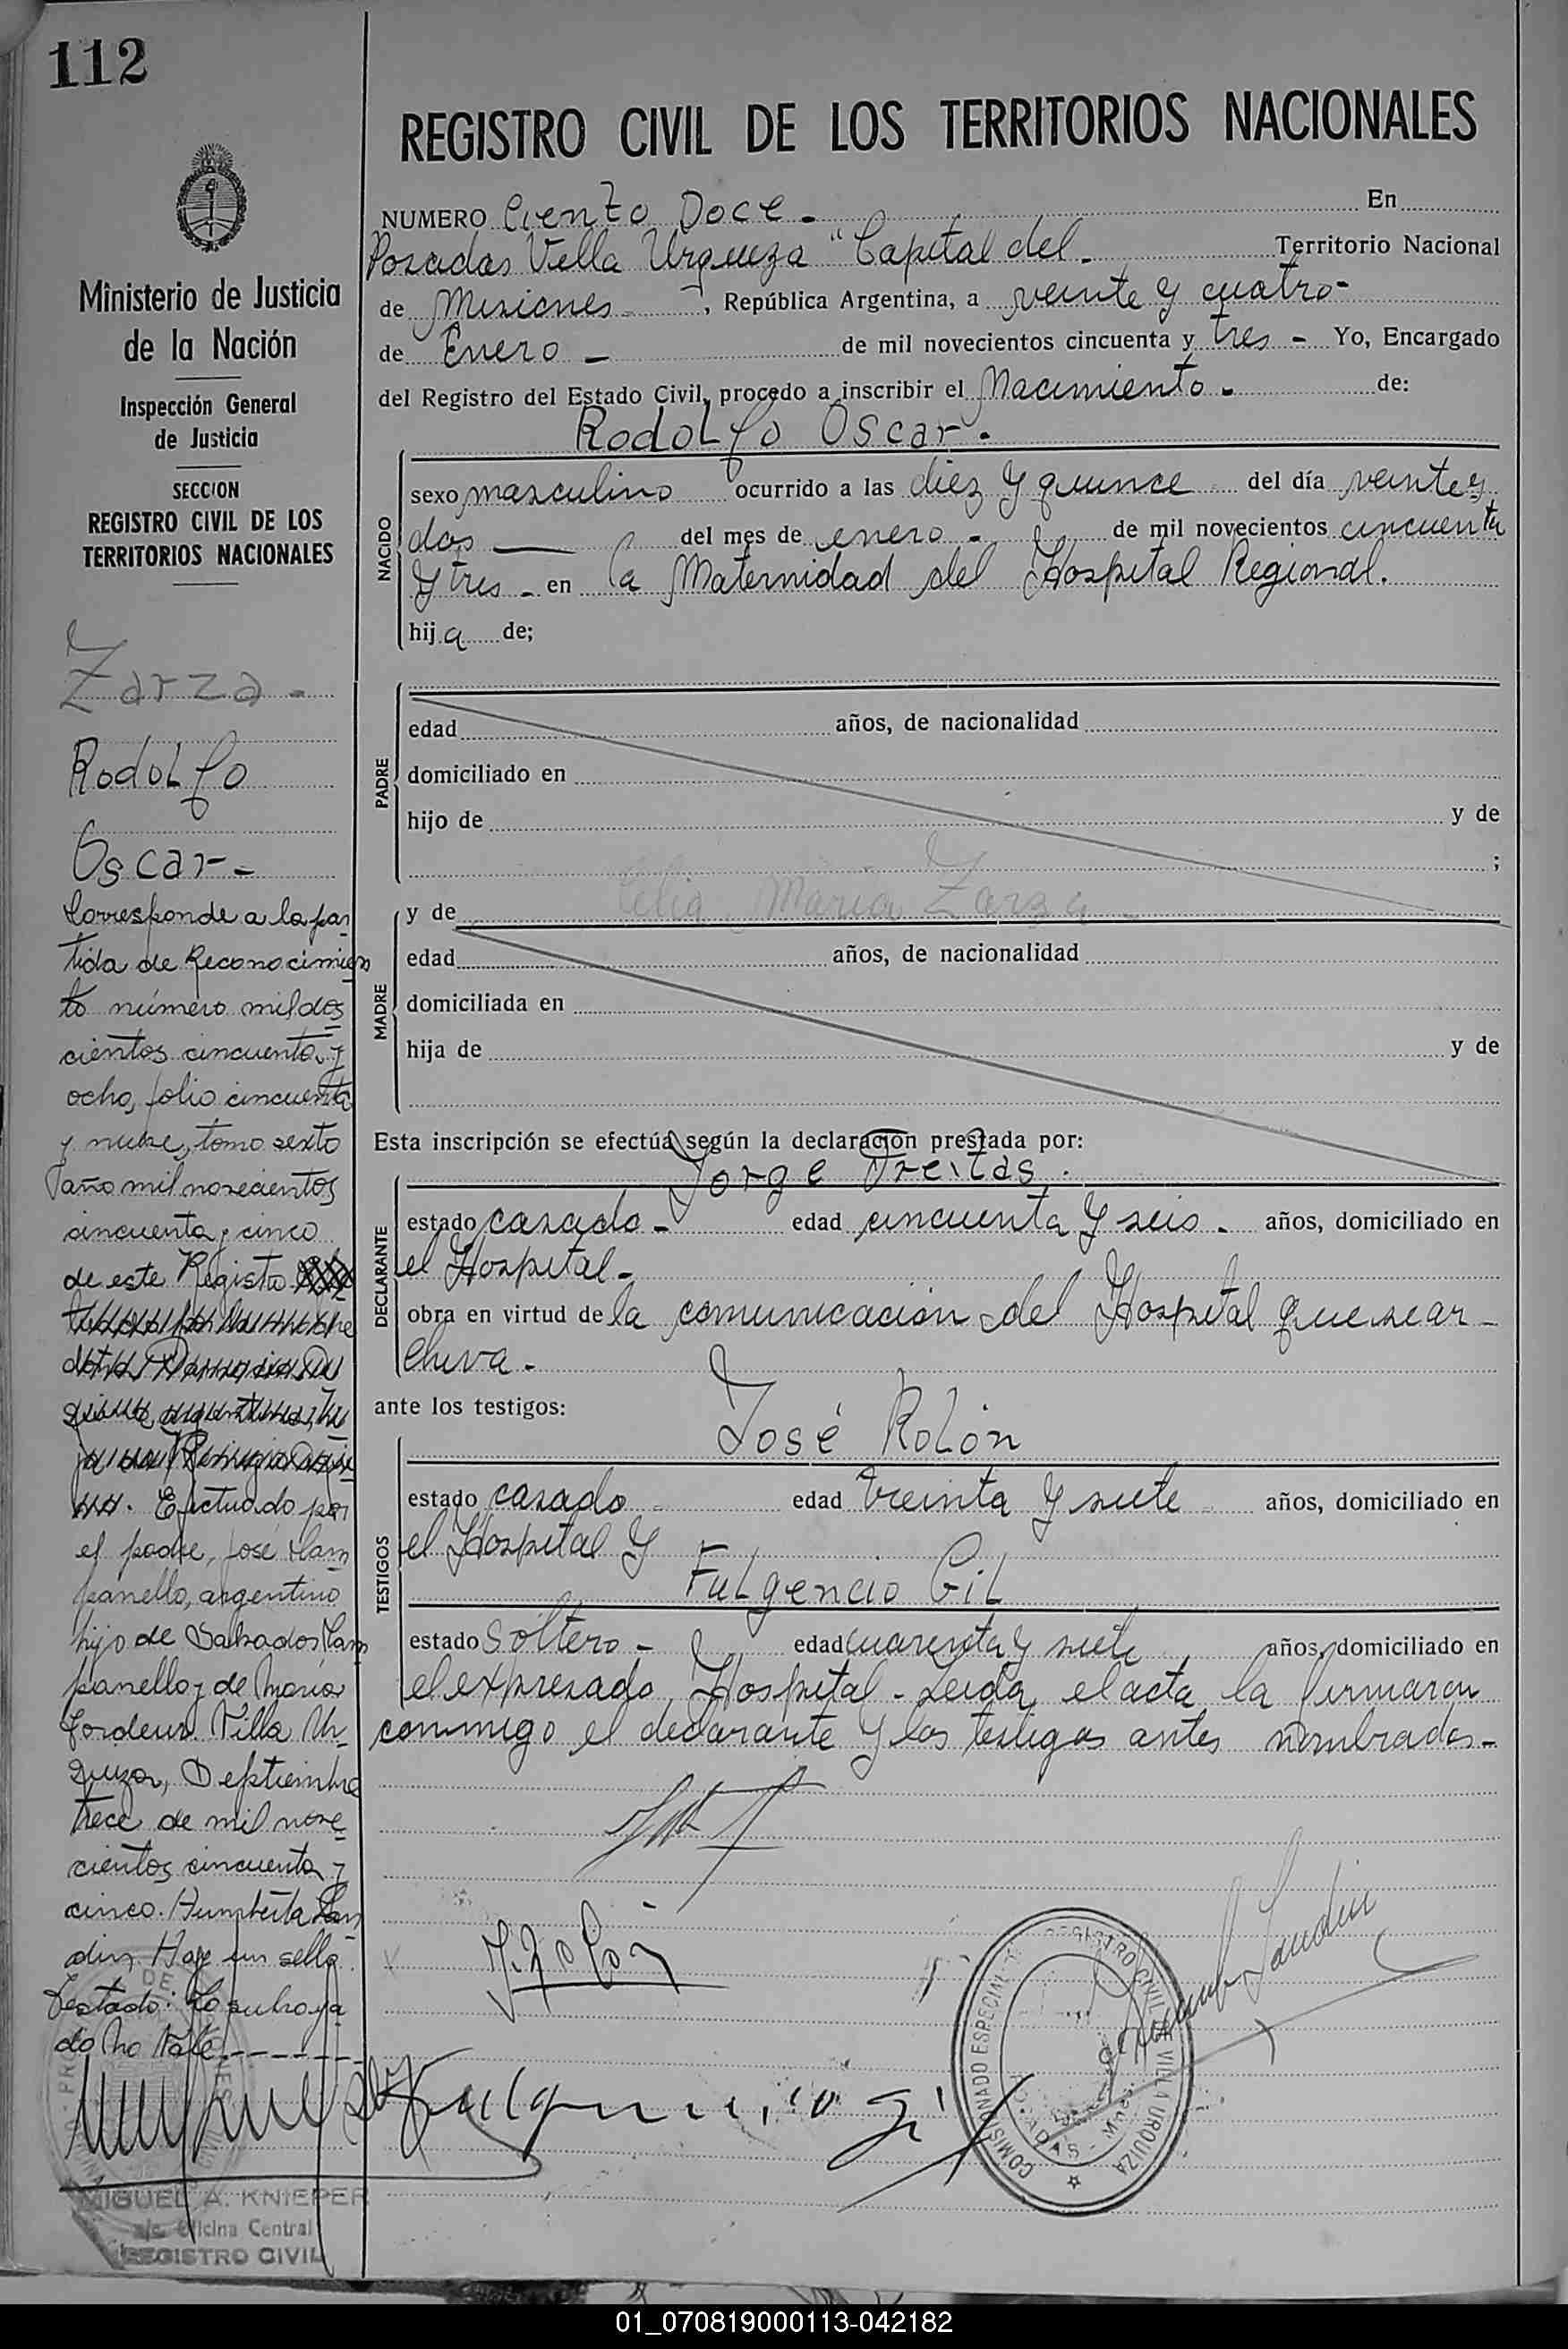 112
REGISTRO CIVIL DE LOS TERRITORIOS NACIONALES
Ministerio de Justicia
de la Nación
Inspección General
de Justicia
SECCION
REGISTRO CIVIL DE LOS
TERRITORIOS NACIONALES
Zarza -
Rodolfo
Oscar -
Corresponde a la par
tida de Reconocimien
to número mil dos
cientos cincuenta y
ocho, folio cincuenta
y nueve, tomo sexto
año mil novecientos
cincuenta y cinco
de este Registro
Efectuado por
el padre, José Cam
panello, argentino
hijo de Salvador Cam
panello y de Maria
Villa Ur
quiza, Septiembre
trece de mil nove
cientos cincuenta y
cinco. Humberto Lan
din. Hay un sello.
Testado: Lo subraya
do No Vale
MIGUEL A. KNIEPER
a/c. Oficina Central
REGISTRO CIVIL
NUMERO Ciento Doce - En
Posadas Villa Urquiza "Capital del - Territorio Nacional
de Misiones - , República Argentina, a veinte y cuatro -
de Enero - de mil novecientos cincuenta y tres - Yo, Encargado
del Registro del Estado Civil, procedo a inscribir el Nacimiento - de:
Rodolfo Oscar -
NACIDO
sexo masculino ocurrido a las diez y quince del día veinte y
dos — del mes de enero - de mil novecientos cincuenta
y tres - en la Maternidad del Hospital Regional.
hij a de;
PADRE
edad años, de nacionalidad
domiciliado en
hijo de y de
;
y de Celia Maria Zarza -
MADRE
edad años, de nacionalidad
domiciliada en
hija de y de
Esta inscripción se efectúa según la declaración prestada por:
Jorge Freitas.
DECLARANTE
estado casado - edad cincuenta y seis - años, domiciliado en
el Hospital -
obra en virtud de la comunicación del Hospital que se ar -
chiva -
ante los testigos:
José Rolón
TESTIGOS
estado casado - edad treinta y siete - años, domiciliado en
el Hospital y
Fulgencio Gil
estado soltero - edad cuarenta y siete años, domiciliado en
el expresado Hospital - Leida el acta la firmaron
conmigo el declarante y los testigos antes nombrados -
J. Rolón
Fulgencio Gil
Humberto Landin
COMISIONADO ESPECIAL REGISTRO CIVIL VILLA URQUIZA
POSADAS - Mnes.
01_070819000113-042182